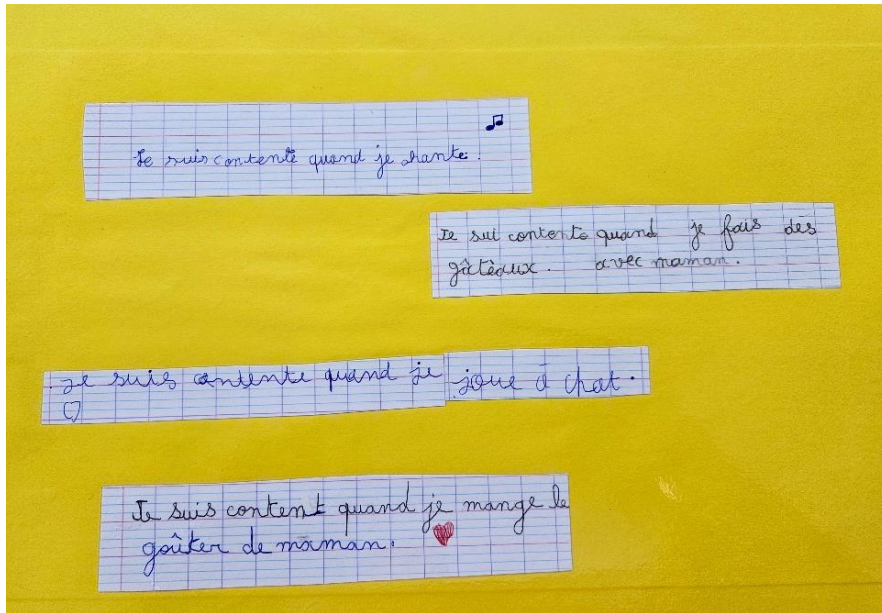 Je suis contente quand je chante.
Je sui contente quand je fais des
gâteaux. avec maman.
Je suis contente quand je joue à chat.
Je suis content quand je mange le
goûter de maman.